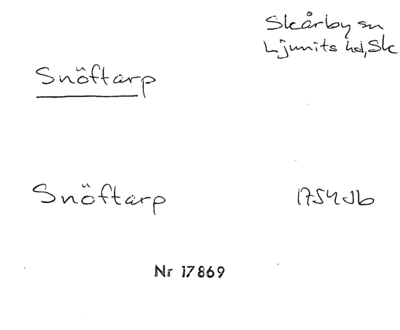 Skårby sn
Ljunits hd, Sk
Snöftarp
Snöftarp 1754 Jb
Nr 17869